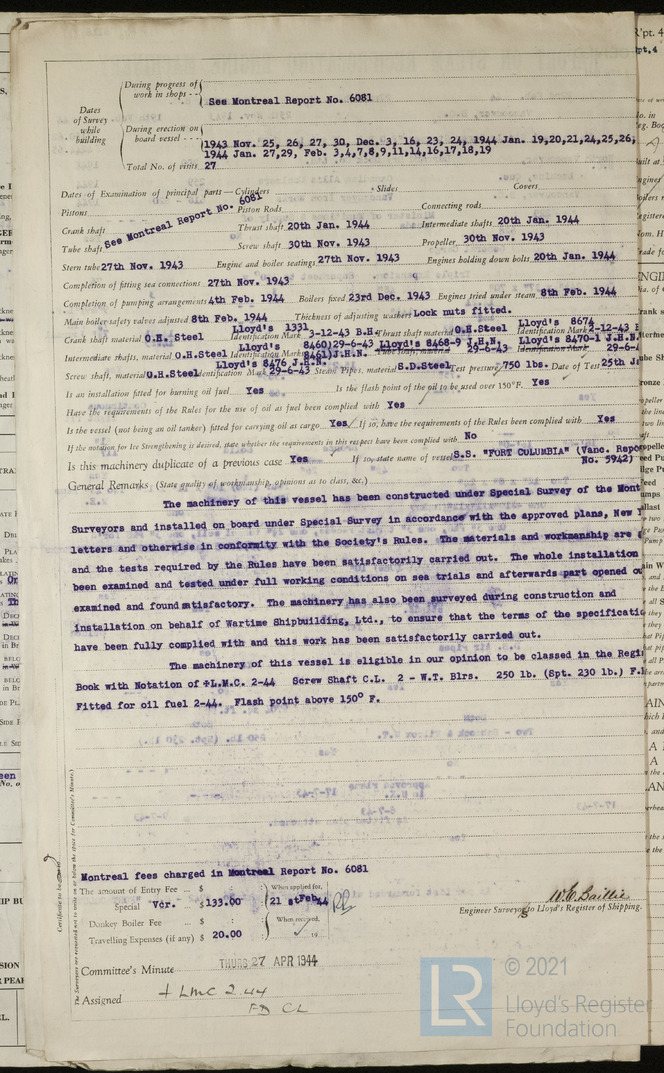 During progress of
work in shops - -
See Montreal Report No. 6081
Dates
of Survey
while
building
During erection on
board vessel - - -
1943 Nov. 25, 26, 27, 30, Dec. 3, 16, 23, 24, 1944 Jan. 19,20,21,24,25,26,
1944 Jan. 27,29, Feb. 3,4,7,8,9,11,14,16,17,18,19
Total No. of visits 27
Dates of Examination of principal parts—Cylinders Slides Covers
Pistons Piston Rods Connecting rods
See Montreal Report No. 6081
Crank shaft Thrust shaft 20th Jan. 1944 Intermediate shafts 20th Jan. 1944
Tube shaft Screw shaft 30th Nov. 1943 Propeller 30th Nov. 1943
Stern tube 27th Nov. 1943 Engine and boiler seatings 27th Nov. 1943 Engines holding down bolts 20th Jan. 1944
Completion of fitting sea connections 27th Nov. 1943
Completion of pumping arrangements 4th Feb. 1944 Boilers fixed 23rd Dec. 1943 Engines tried under steam 8th Feb. 1944
Main boiler safety valves adjusted 8th Feb. 1944 Thickness of adjusting washers Lock nuts fitted.
Lloyd's 1331 Lloyd's 8674
Crank shaft material O.H. Steel Identification Mark 3-12-43 B.H. Thrust shaft material O.H.Steel Identification Mark 2-12-43
Lloyd's 8460)29-6-43 Lloyd's 8468-9 J.H.N. Lloyd's 8470-1 J.H.N.
Intermediate shafts, material O.H.Steel Identification Marks 8461)J.H.N. Tube shaft, material 29-6-43 Identification Mark 29-6-
Lloyd's 8476 J.H.N.
Screw shaft, material O.H.Steel Identification Mark 29-6-43 Steam Pipes, material S.D.Steel Test pressure 750 lbs. Date of Test 25th J
Is an installation fitted for burning oil fuel Yes Is the flash point of the oil to be used over 150°F. Yes
Have the requirements of the Rules for the use of oil as fuel been complied with Yes
Is the vessel (not being an oil tanker) fitted for carrying oil as cargo Yes If so, have the requirements of the Rules been complied with Yes
If the notation for Ice Strengthening is desired, state whether the requirements in this respect have been complied with No
Is this machinery duplicate of a previous case Yes If so, state name of vessel S.S. "FORT COLUMBIA" (Vanc. Repo
No. 5942)
General Remarks (State quality of workmanship, opinions as to class, &c.)
The machinery of this vessel has been constructed under Special Survey of the Mont
Surveyors and installed on board under Special Survey in accordance with the approved plans, New
letters and otherwise in conformity with the Society's Rules. The materials and workmanship are
and the tests required by the Rules have been satisfactorily carried out. The whole installation
been examined and tested under full working conditions on sea trials and afterwards part opened
examined and found satisfactory. The machinery has also been surveyed during construction and
installation on behalf of Wartime Shipbuilding, Ltd., to ensure that the terms of the specificatio
have been fully complied with and this work has been satisfactorily carried out.
The machinery of this vessel is eligible in our opinion to be classed in the Regi
Book with Notation of +L.M.C. 2-44 Screw Shaft C.L. 2 - W.T. Blrs. 250 lb. (Spt. 230 lb.) F.
Fitted for oil fuel 2-44. Flash point above 150° F.
Montreal fees charged in Montreal Report No. 6081
The amount of Entry Fee ... $ : When applied for,
Special Vcr. $133.00 21 st Feb. 44
Donkey Boiler Fee ... $ : When received,
Travelling Expenses (if any) $ 20.00 19
W.C. Baillie
Engineer Surveyor to Lloyd's Register of Shipping.
Committee's Minute THURS 27 APR 1944
Assigned + LMC 2.44
FD CL
The Surveyors are requested not to write on or below the space for Committee's Minute.
© 2021
Lloyd's Register
Foundation
LR